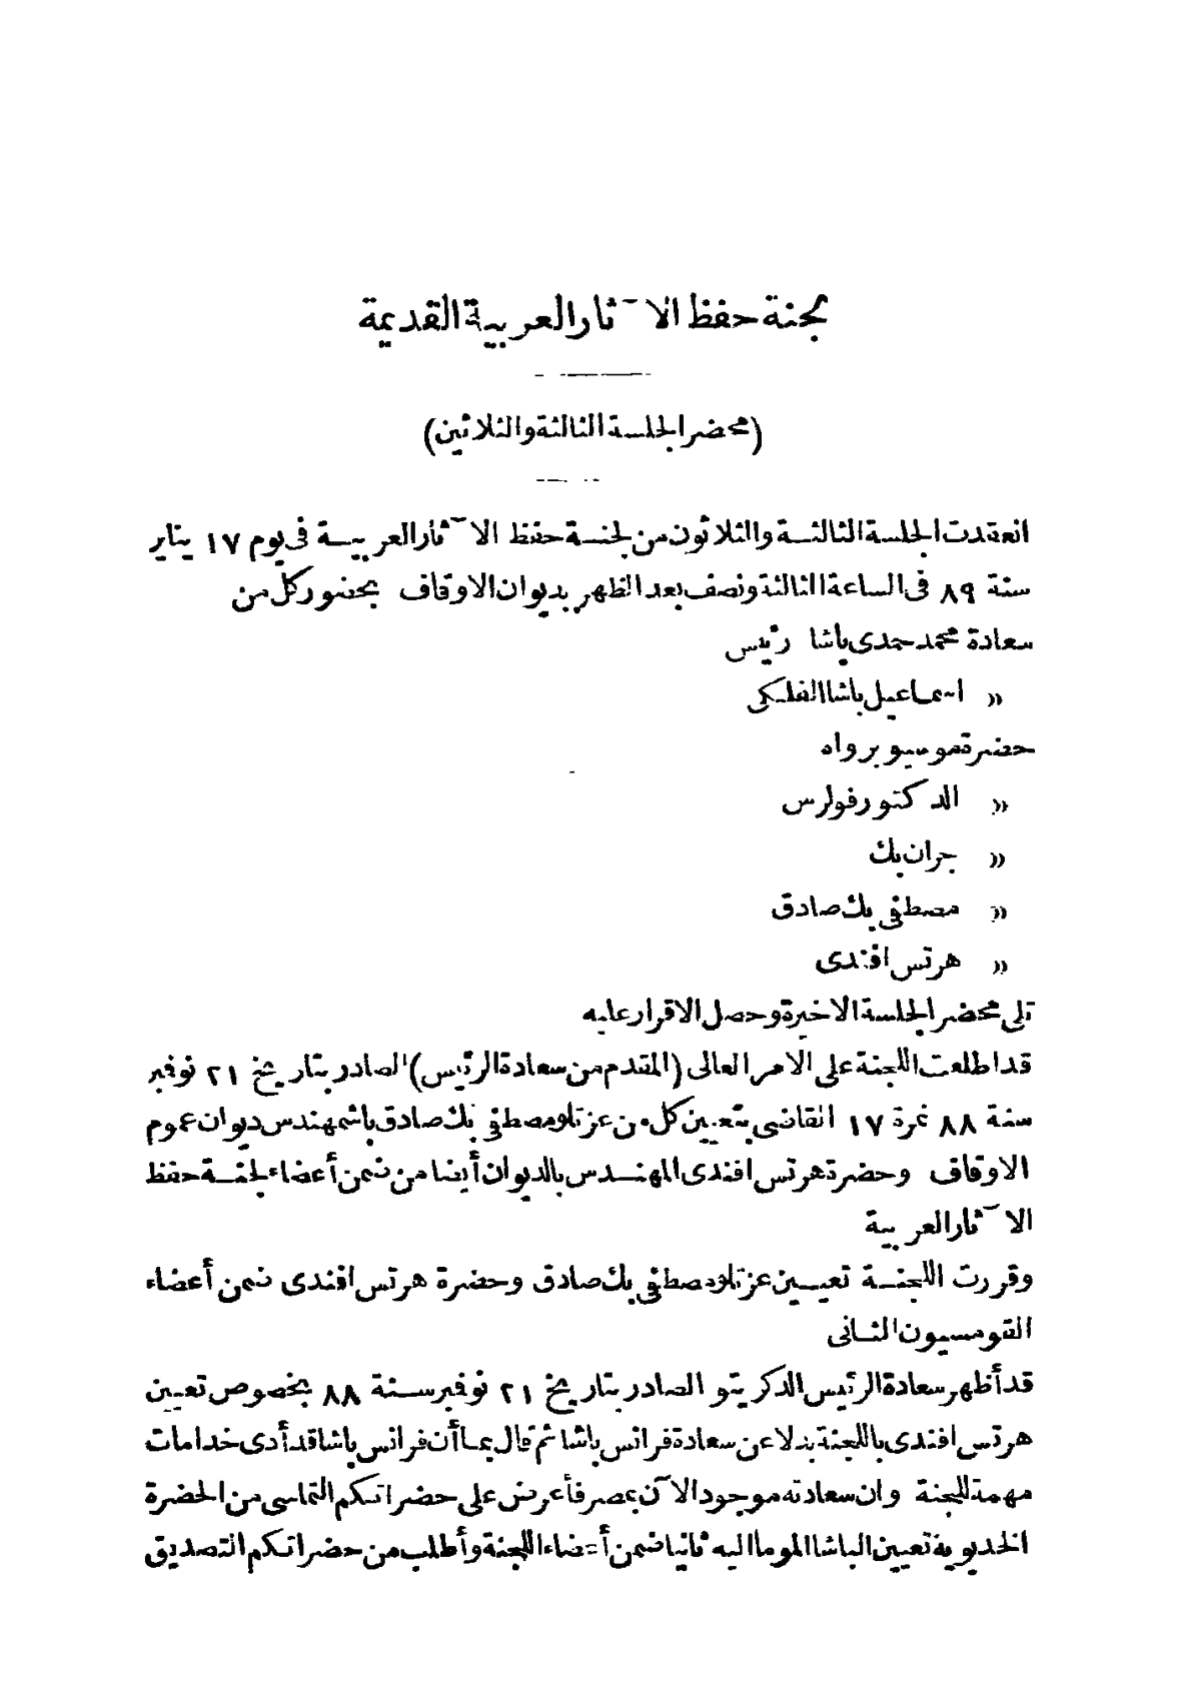 لجنة حفظ الآثار العربية القديمة
(محضر الجلسة الثالثة والثلاثين)
انعقدت الجلسة الثالثة والثلاثون من لجنة حفظ الآثار العربية فى يوم ١٧ يناير
سنة ٨٩ فى الساعة الثالثة ونصف بعد الظهر بديوان الاوقاف بحضور كل من
سعادة محمد حمدى باشا رئيس
» اسماعيل باشا الفلكى
حضرة موسيو برواه
» الدكتور فولرس
» جران بك
» مصطفى بك صادق
» هرتس افندى
تلى محضر الجلسة الاخيرة وحصل الاقرار عليه
قد اطلعت اللجنة على الامر العالى (المقدم من سعادة الرئيس) الصادر بتاريخ ٢١ نوفبر
سنة ٨٨ نمرة ١٧ القاضى بتعيين كل من عزتلو مصطفى بك صادق باشمهندس ديوان عموم
الاوقاف وحضرة هرتس افندى المهندس بالديوان أيضا من ضمن أعضاء لجنة حفظ
الآثار العربية
وقررت اللجنة تعيين عزتلو مصطفى بك صادق وحضرة هرتس افندى ضمن أعضاء
القومسيون الثانى
قد أظهر سعادة الرئيس الدكريتو الصادر بتاريخ ٢١ نوفبر سنة ٨٨ بخصوص تعيين
هرتس افندى باللجنة بدلا عن سعادة فرانس باشا ثم قال بما أن فرانس باشا قد أدى خدامات
مهمة للجنة وان سعادته موجود الآن بمصر فأعرض على حضراتكم التماسى من الحضرة
الخديوية تعيين الباشا الموما اليه ثانيا ضمن أعضاء اللجنة وأطلب من حضراتكم التصديق